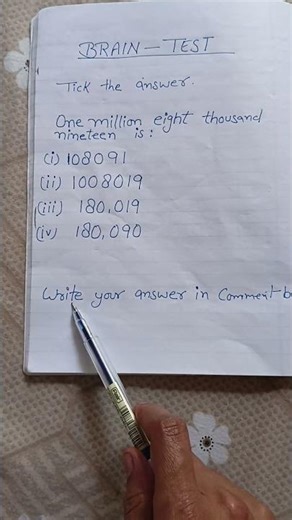 BRAIN – TEST
Tick the answer.
One million eight thousand
nineteen is :
(i) 108091
(ii) 1008019
(iii) 180,019
(iv) 180,090
Write your answer in Comment